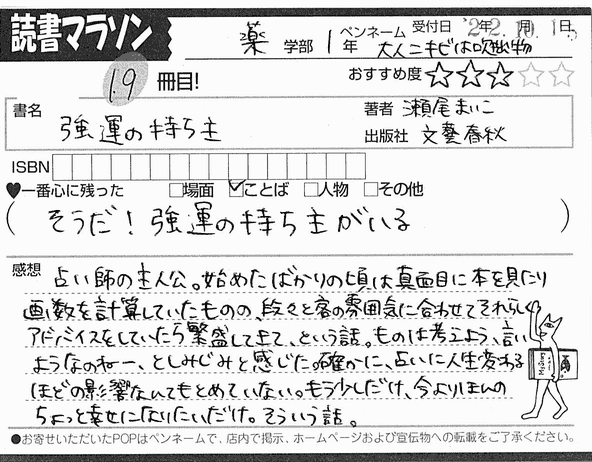 読書マラソン
薬 学部 1年 ペンネーム 大人ニキビは吹出物
受付日 '22年 10月 1日
19冊目!
おすすめ度 ★★★☆☆
書名 強運の持ち主
著者 瀬尾まいこ
出版社 文藝春秋
ISBN
♥一番心に残った □場面 ☑ことば □人物 □その他
(そうだ!強運の持ち主がいる)
感想 占い師の主人公。始めたばかりの頃は真面目に本を見たり
画数を計算していたものの、段々と客の雰囲気に合わせてそれらしく
アドバイスをしていたら繁盛して上々、という話。ものは考えよう、言い
ようなのねー、としみじみと感じた。確かに、占いに人生変わる
ほどの影響なんてもとめていない。もう少しだけ、今よりほんの
ちょっと幸せになりたいだけ。そういう話。
●お寄せいただいたPOPはペンネームで、店内で掲示、ホームページおよび宣伝物への転載をご了承ください。